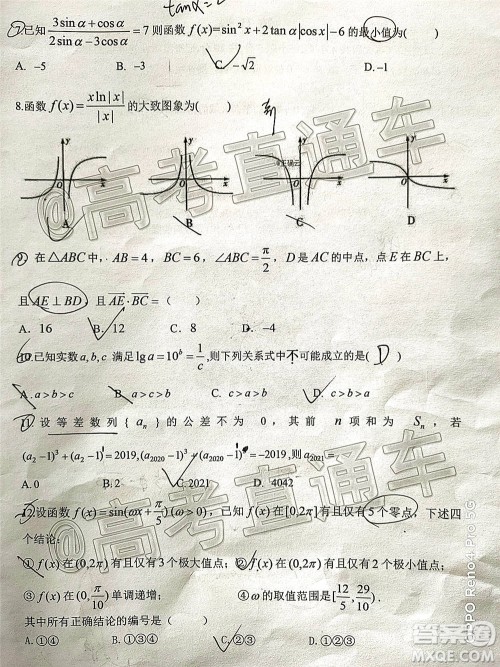 tanα=2
7.已知 (3sinα+cosα)/(2sinα-3cosα)=7 则函数 f(x)=sin²x+2tanα|cosx|-6 的最小值为(  )
A. -5 B. -3 C. -√2 D. -1
8.函数 f(x)=xln|x|/|x| 的大致图象为(  )
y y y y
O x O x O x O x
A B C D
9. 在△ABC中，AB=4，BC=6，∠ABC=π/2，D是AC的中点，点E在BC上，
且 AE⊥BD，且 AE·BC=（  ）
A．16 B．12 C．8 D．-4
10.已知实数a,b,c 满足lga=10^b=1/c,则下列关系式中不可能成立的是( D )
A. a>b>c B. a>c>b C. c>a>b D. c>b>a
11.设等差数列{a_n}的公差不为0，其前n项和为S_n，若
(a₂-1)³+(a₂-1)=2019,(a₂₀₂₀-1)³+(a₂₀₂₀-1)=-2019,则a₂₀₂₁=
A.0 B.2 C.2021 D. 4042
12.设函数 f(x)=sin(ωx+π/5)(ω>0)，已知 f(x)在[0,2π]有且仅有5个零点，下述四
个结论:
①f(x)在(0,2π)有且仅有3个极大值点；②f(x)在(0,2π)有且仅有2个极小值点；
③f(x)在(0,π/10)单调递增； ④ω的取值范围是[12/5,29/10).
其中所有正确结论的编号是（  ）
A.①④ B.①③④ C.②③ D.①②③
@高考直通车
@高考直通车
OPPO Reno4 Pro 5G
答案圈
MXQE.COM